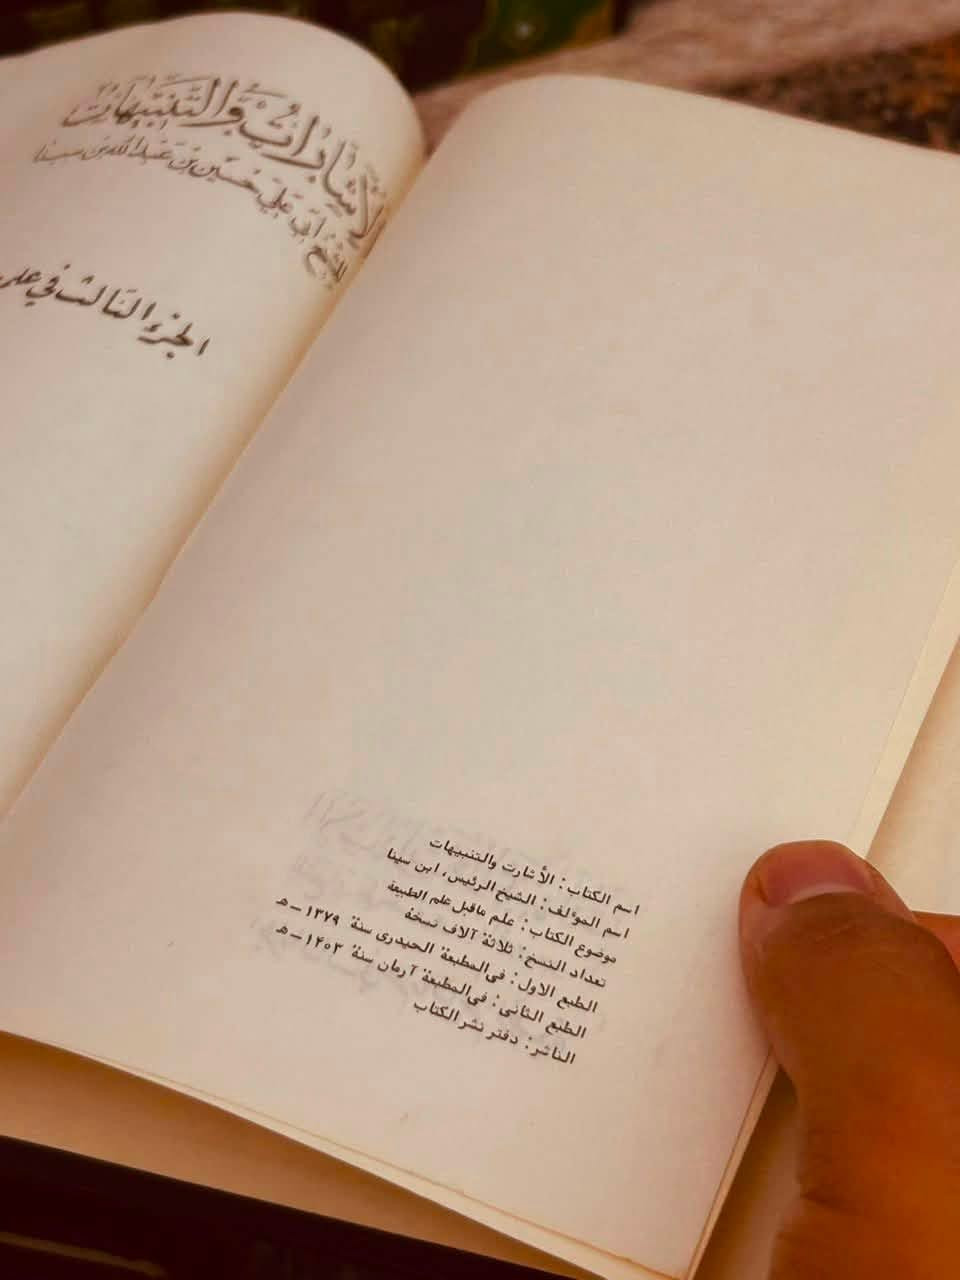 الاشارات والتنبيهات
للشيخ ابي علي حسين بن عبدالله بن سينا
الجزء الثالث في علم
اسم الكتاب: الأشارت والتنبيهات
اسم المؤلف: الشيخ الرئيس، ابن سينا
موضوع الكتاب: علم ماقبل علم الطبيعة
تعداد النسخ: ثلاثة آلاف نسخة
الطبع الاول: فى‌المطبعة الحيدرى سنة ۱۳۷۹ – هـ
الطبع الثانى: فى‌المطبعة آرمان سنة ۱۴۰۳ – هـ
الناشر: دفتر نشر الكتاب